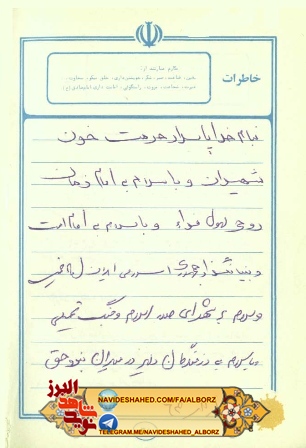 خاطرات
مکارم
بنام خدا پاسدار حرمت خون
شهیدان و با سلام به امام زمان
روحی له فداء و با سلام به امام امت
و بنیانگذار جمهوری اسلامی ایران
وسلام به شهدای صدر اسلام و جنگ تحمیلی
با سلام به رزمندگان دلیر در میدان نبرد حق
نوید شاهد
البرز
NAVIDESHAHED.COM/FA/ALBORZ
TELEGRAM.ME/NAVIDESHAHED_ALBORZ